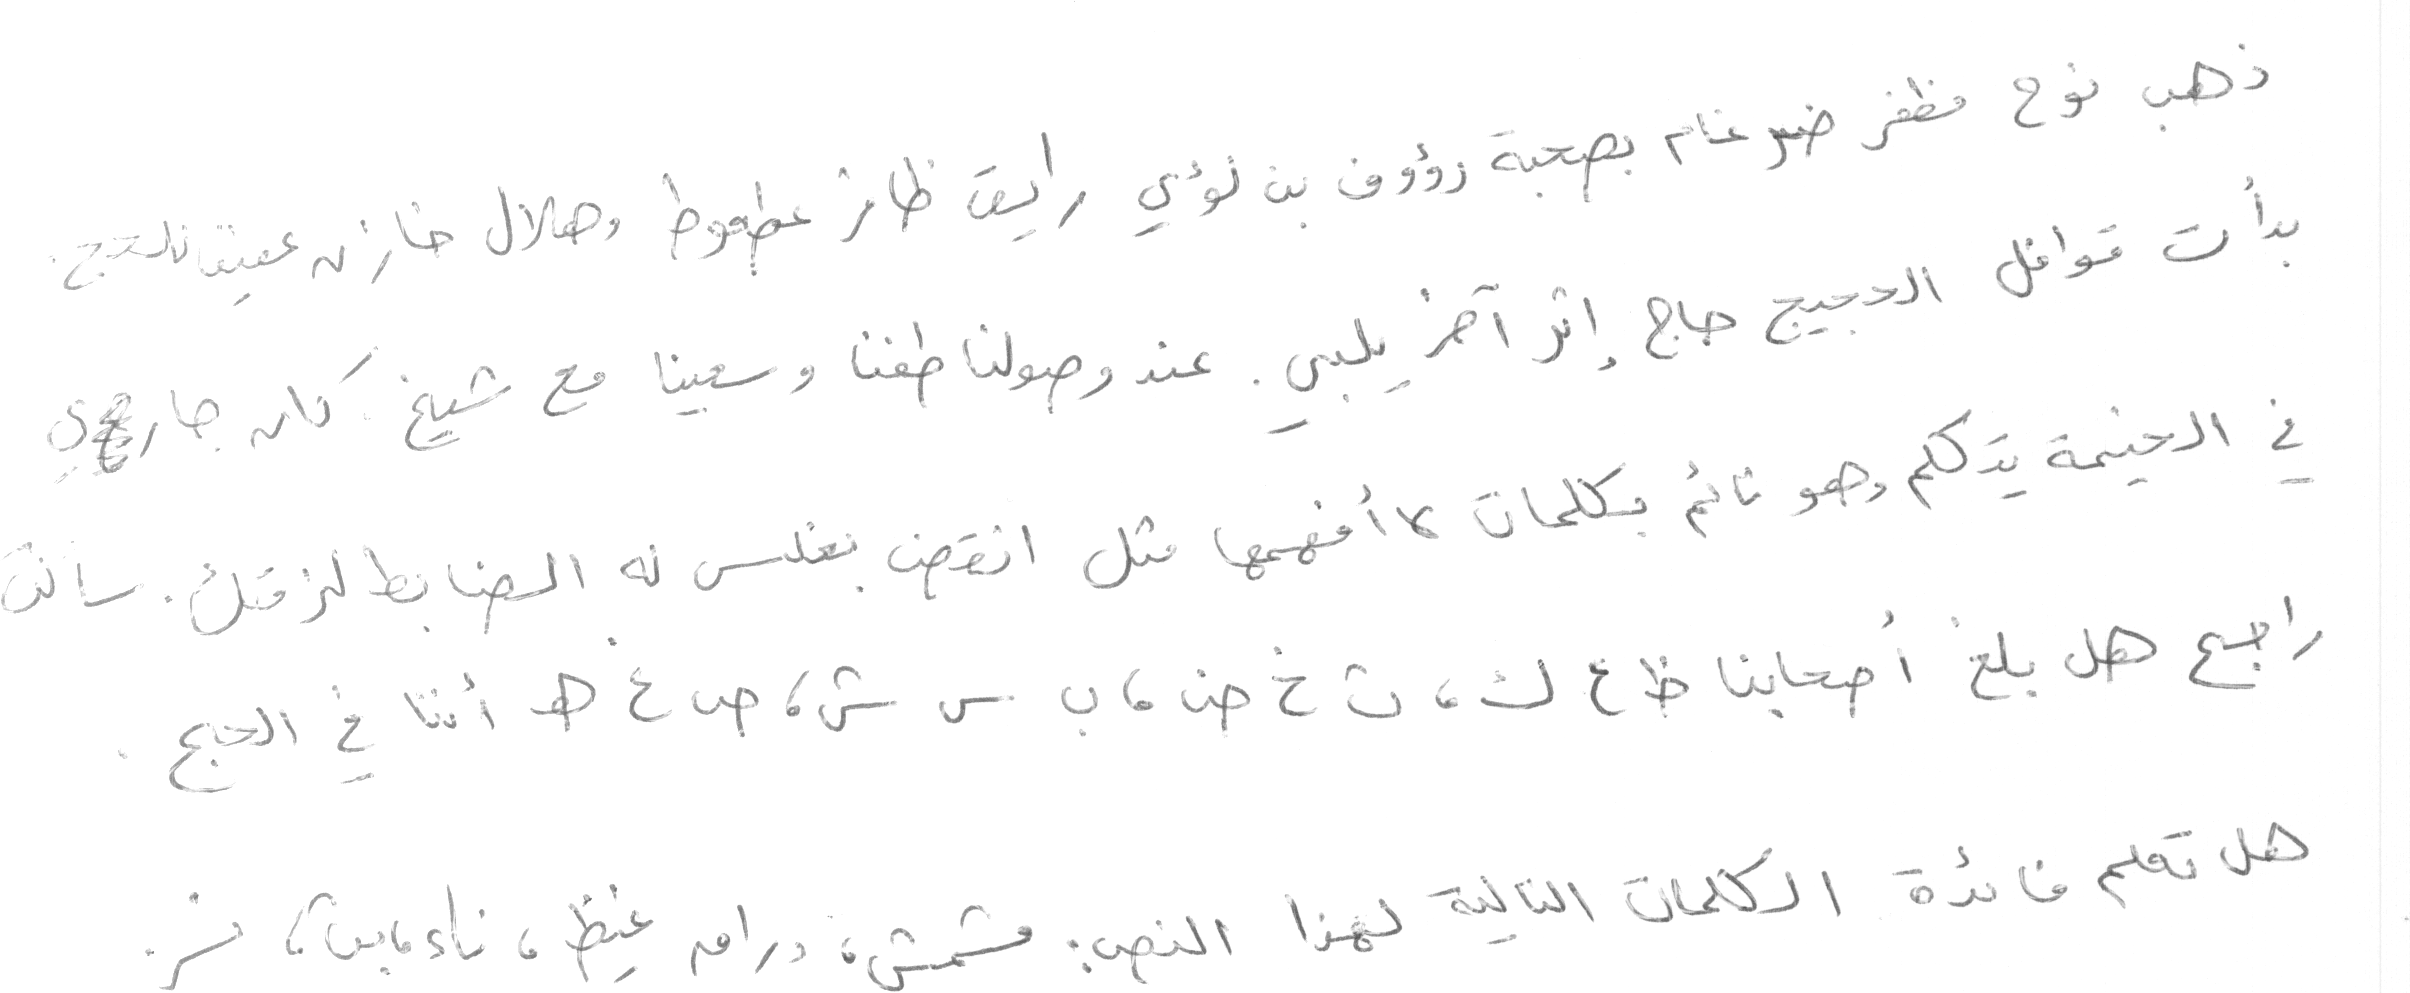 ذهب نوح مظفر ضرغام بصحبة رؤوف بن لؤي رايق ظافر عطعوط وهلال خازن عفيفا للحج.
بدأت قوافل الحجيج حاج إثر آخر يلبي. عند وصولنا طفنا وسعينا مع شيخ. كان جاري
في الخيمة يتكلم وهو نائم بكلمات لا أفهمها مثل انقض بغلس له الضابط لزقك. سألت
راجع هل بلغ أصحابنا ظ ع ك، ث خ ض، ب س ش، ص غ هـ أننا في الحج.
هل تعلم فائدة الكلمات التالية لهذا النص: مشمش، درامه غيظ، ناء، بس، نر.